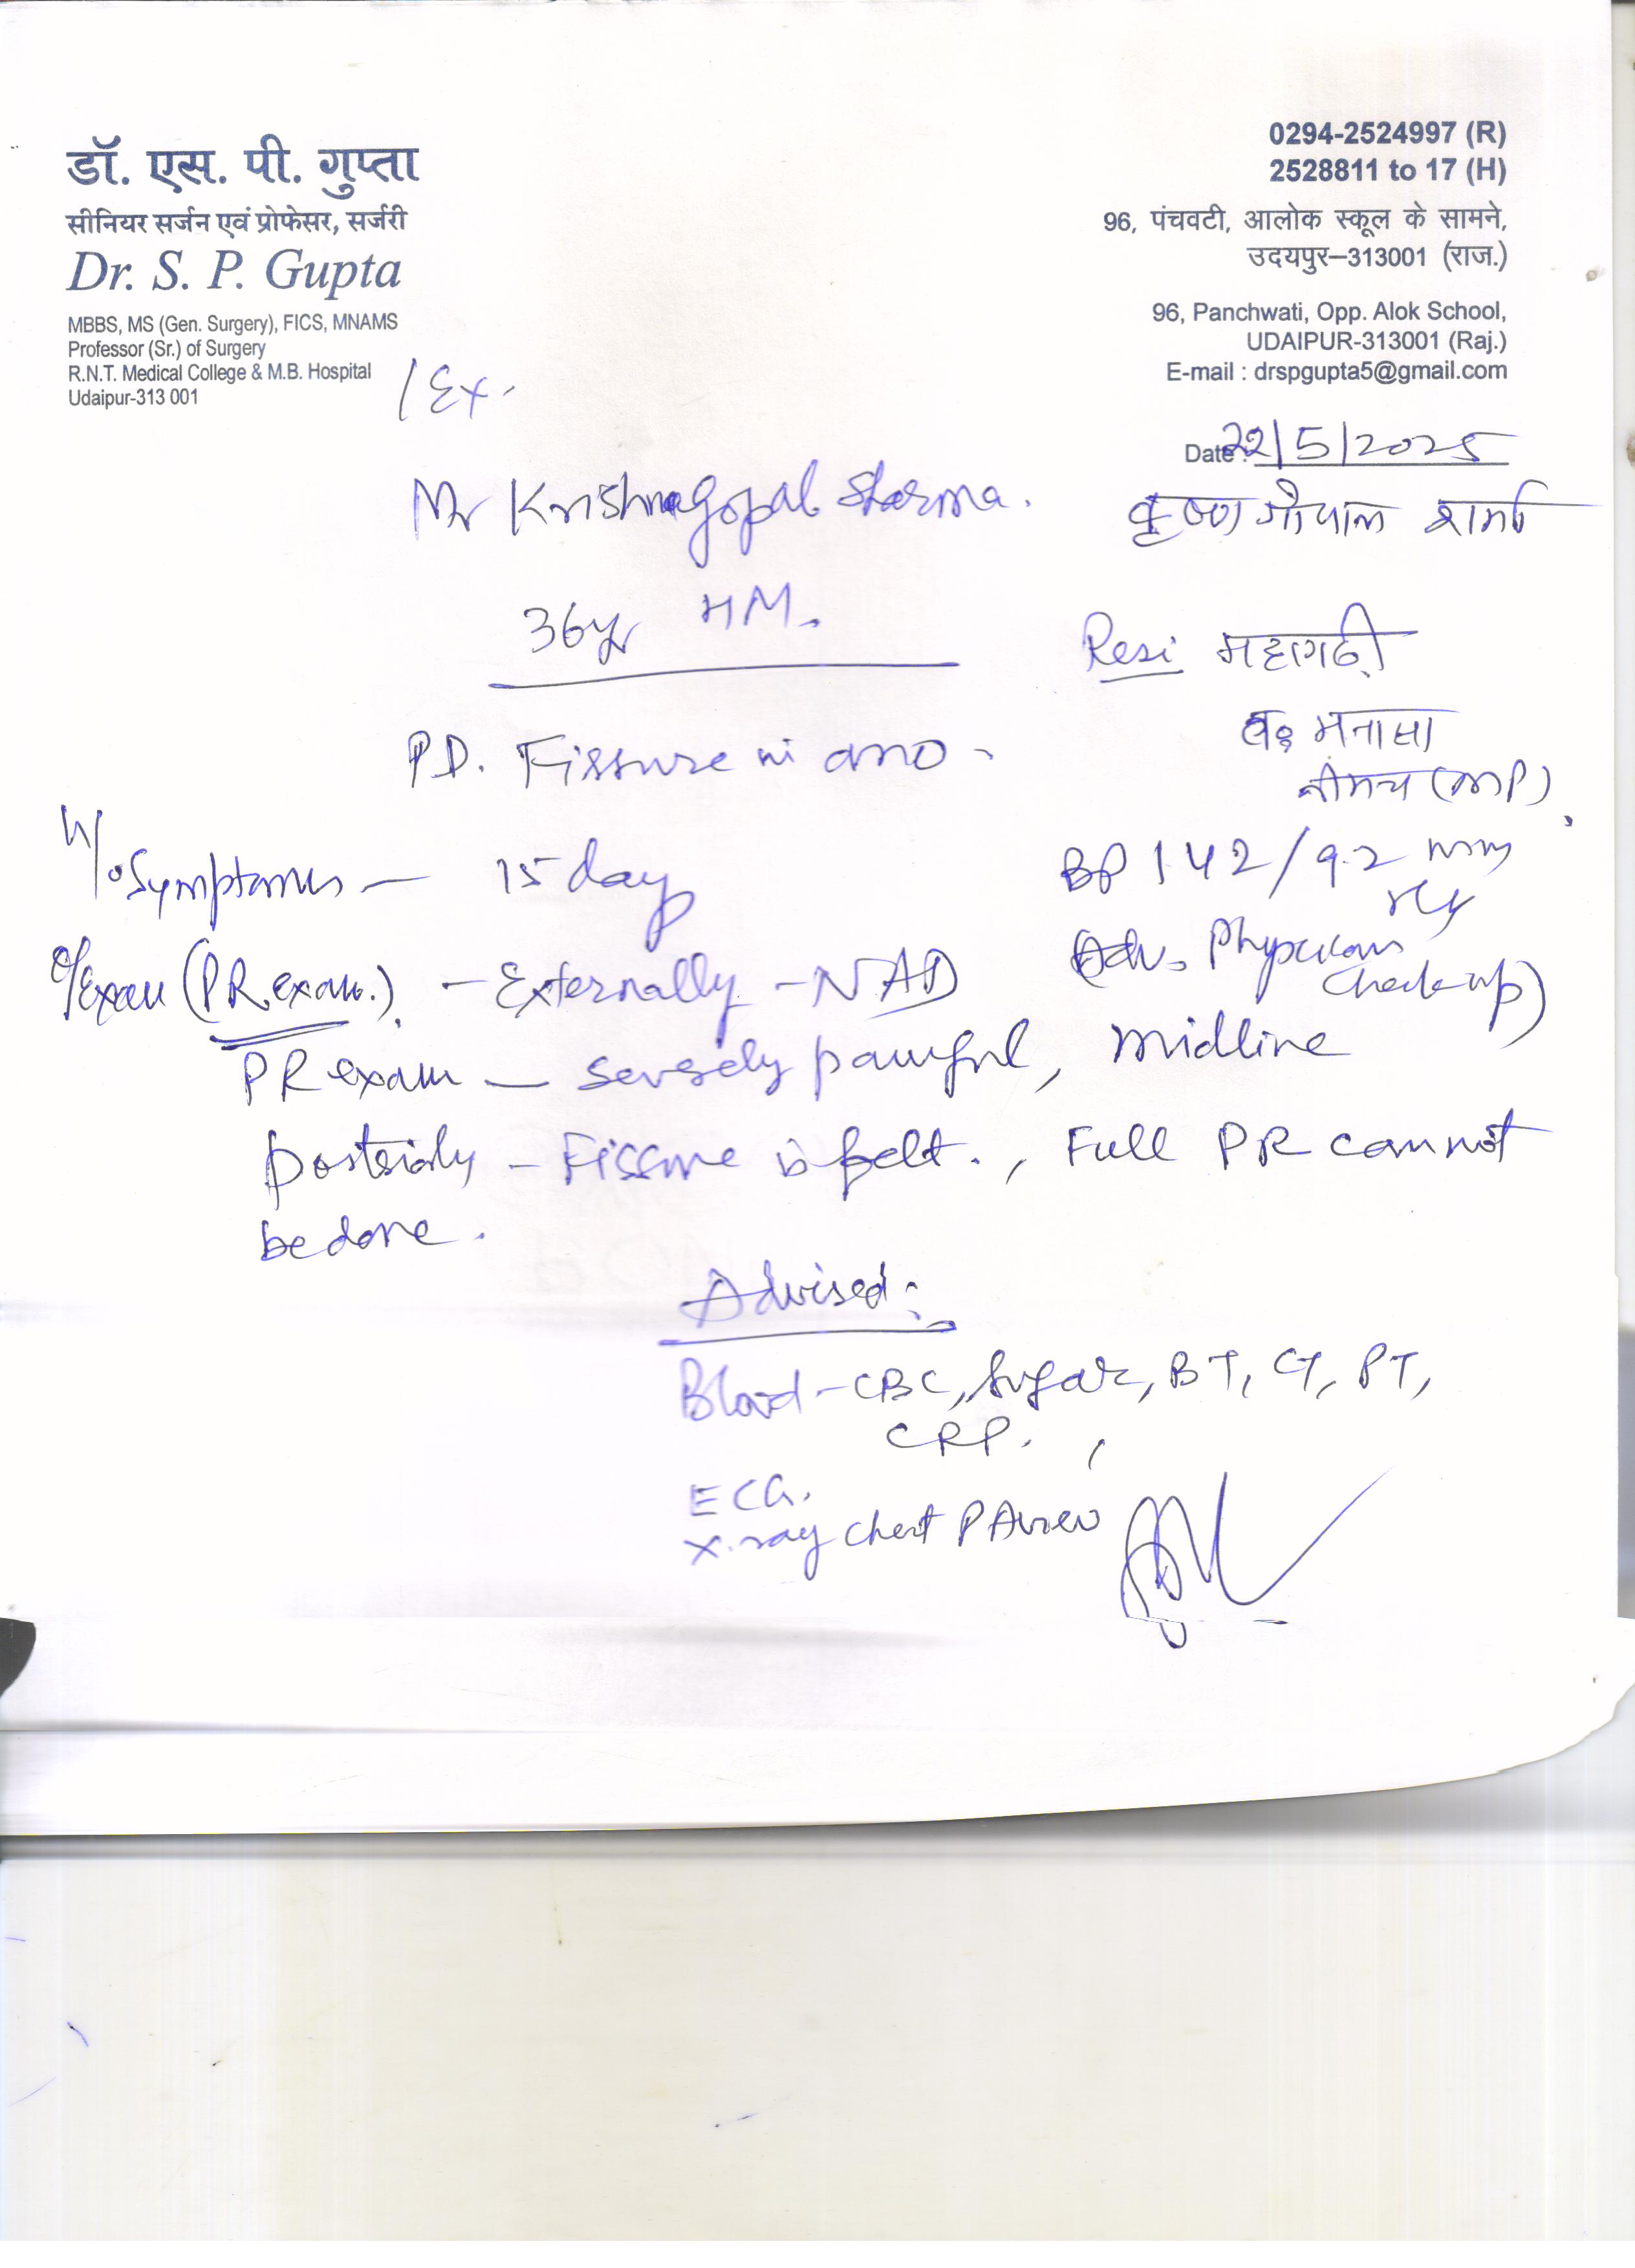 डॉ. एस. पी. गुप्ता
सीनियर सर्जन एवं प्रोफेसर, सर्जरी
Dr. S. P. Gupta
MBBS, MS (Gen. Surgery), FICS, MNAMS
Professor (Sr.) of Surgery
R.N.T. Medical College & M.B. Hospital
Udaipur-313 001
/Ex.
0294-2524997 (R)
2528811 to 17 (H)
96, पंचवटी, आलोक स्कूल के सामने,
उदयपुर–313001 (राज.)
96, Panchwati, Opp. Alok School,
UDAIPUR-313001 (Raj.)
E-mail : drspgupta5@gmail.com
Date : 22/5/2025
Mr Krishnagopal Sharma.
कृष्ण गोपाल शर्मा
36yr HM.
Resi महागढ़ी
मनासा
नीमच (MP)
PD. Fissure in ano
H/o Symptoms — 15 day
BP 142/92 mm
Hg
(Adv. Physician
Check-up)
o/Exam (PR exam.) - Externally - NAD
PR exam — severely painful, midline
posteriorly - Fissure is felt., Full PR cannot
be done.
Advised:
Blood - CBC, Sugar, BT, CT, PT,
CRP.
ECG.
X.ray Chest PA view